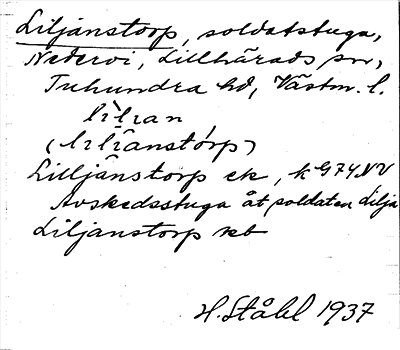 Liljanstorp, soldatstuga,
Nedervi, Lillhärads sn,
Tuhundra hd, Västm. l.
lìlˌjan
(lilianstórp)
Lilljänstorp ek, k G74 NV
Avskedsstuga åt soldaten Lilja
Liljanstorp kb
H. Ståhl 1937